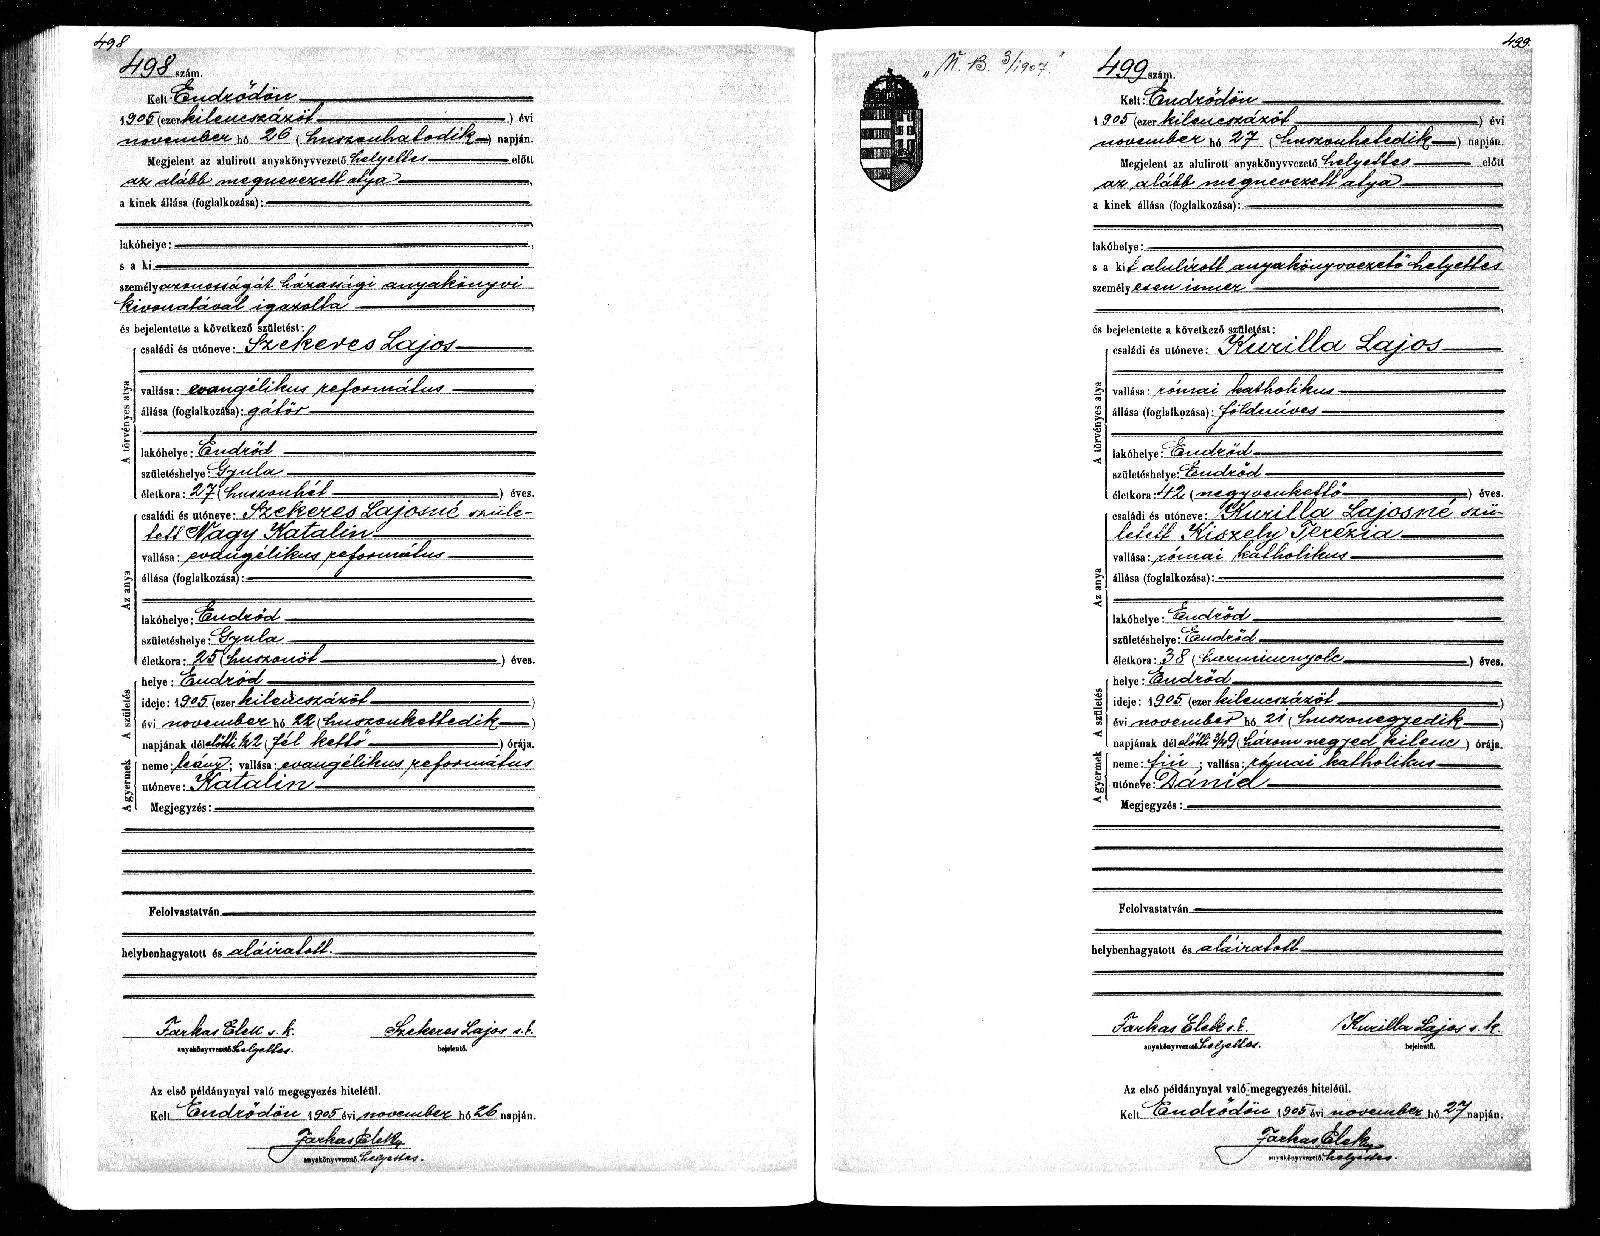 498
498 szám.
Kelt Endrődön
1905 (ezer kilencszázöt) évi
november hó 26 (huszonhatodik) napján.
Megjelent az alulirott anyakönyvvezető helyettes előtt
az alább megnevezett atya,
a kinek állása (foglalkozása):
lakóhelye:
s a ki
személyazonosságát házassági anyakönyvi
kivonatával igazolta
és bejelentette a következő születést:
A törvényes atya
családi és utóneve: Szekeres Lajos
vallása: evangélikus református
állása (foglalkozása): gátőr
lakóhelye: Endrőd
születéshelye: Gyula
életkora: 27 (huszonhét) éves.
Az anya
családi és utóneve: Szekeres Lajosné szüle-
tett Nagy Katalin
vallása: evangélikus református
állása (foglalkozása):
lakóhelye: Endrőd
születéshelye: Gyula
életkora: 25 (huszonöt) éves.
A születés
helye: Endrőd
ideje: 1905 (ezer kilencszázöt)
évi november hó 22 (huszonkettedik)
napjának délelőtti 1/2 2 (fél kettő) órája.
A gyermek
neme: leány; vallása: evangélikus református
utóneve: Katalin
Megjegyzés:
Felolvastatván
helybenhagyatott és aláiratott.
Farkas Elek s. k. Szekeres Lajos s. k.
anyakönyvvezető helyettes. bejelentő.
Az első példánynyal való megegyezés hiteléül.
Kelt Endrődön 1905 évi november hó 26 napján.
Farkas Elek
anyakönyvvezető, helyettes.
„M. B. 3/1907."
499.
499 szám.
Kelt: Endrődön
1905 (ezer kilencszázöt) évi
november hó 27 (huszonhetedik) napján.
Megjelent az alulirott anyakönyvvezető helyettes előtt
az alább megnevezett atya
a kinek állása (foglalkozása):
lakóhelye:
s a kit alulírott anyakönyvvezető helyettes
személyesen ismer
és bejelentette a következő születést:
A törvényes atya
családi és utóneve: Kurilla Lajos
vallása: római katholikus
állása (foglalkozása): földmíves
lakóhelye: Endrőd
születéshelye: Endrőd
életkora: 42 (negyvenkettő) éves.
Az anya
családi és utóneve: Kurilla Lajosné szü-
letett Kiszely Terézia
vallása: római katholikus
állása (foglalkozása):
lakóhelye: Endrőd
születéshelye: Endrőd
életkora: 38 (harmincnyolc) éves.
A születés
helye: Endrőd
ideje: 1905 (ezer kilencszázöt)
évi november hó 21 (huszonegyedik)
napjának délelőtti 3/4 9 (három negyed kilenc) órája.
A gyermek
neme: fiú; vallása: római katholikus
utóneve: Dániel
Megjegyzés:
Felolvastatván
helybenhagyatott és aláiratott
Farkas Elek s. k. Kurilla Lajos s. k.
anyakönyvvezető helyettes. bejelentő.
Az első példánynyal való megegyezés hiteléül.
Kelt Endrődön 1905 évi november hó 27 napján.
Farkas Elek
anyakönyvvezető, helyettes.